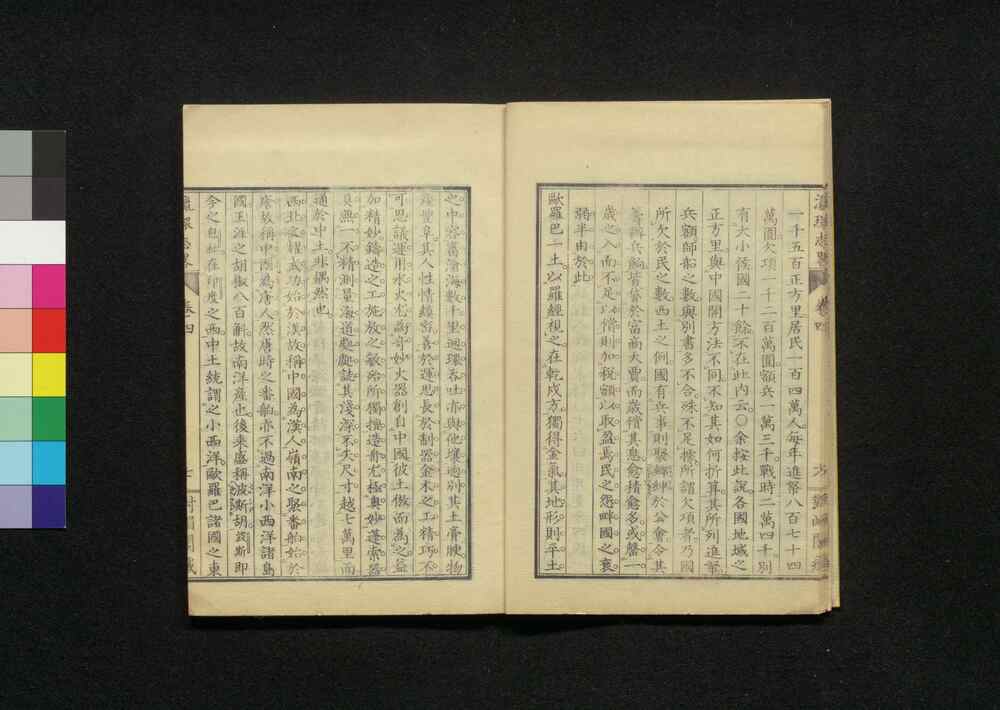 瀛環志畧 卷四
一千五百正方里居民一百四萬人每年進帑八百七十四
萬圓欠項一千二百萬圓額兵一萬三千戰時二萬四千別
有大小侯國二十餘不在此內云〇余按此說各國地域之
正方里與中國開方法不同不知其如何折算其所列進帑
兵額師船之數與別書多不合殊不足據所謂欠項者乃國
所欠於民之數西土之例國有兵事則聚縉紳於公會令其
籌辦兵餉皆貸於富商大賈而歲償其息愈積愈多或罄一
歲之入而不足以償則加稅額以取盈焉民之怨畔國之衰
弱半由於此
歐羅巴一土以羅經視之在乾戌方獨得金氣其地形則平土
之中容畜滄海數千里迴環吞吐亦與他壤逈別其土膏腴物
產豐阜其人性情縝密善於運思長於制器金木之工精巧不
可思議運用水火尤為奇妙火器創自中國彼土倣而為之益
加精妙鑄造之工施放之敏殆所獨擅造舟尤極奧妙篷索器
具無一不精測量海道處處誌其淺深不失尺寸越七萬里而
通於中土非偶然也
西北之權成功始於漢故稱中國為漢人嶺南之聚番舶始於
唐故稱中國為唐人然唐時之番舶亦不過南洋小西洋諸島
國王涯之胡椒八百斛故南洋產也後來盛稱波斯胡波斯即
今之包社在印度之西中土統謂之小西洋歐羅巴諸國之東
卷四